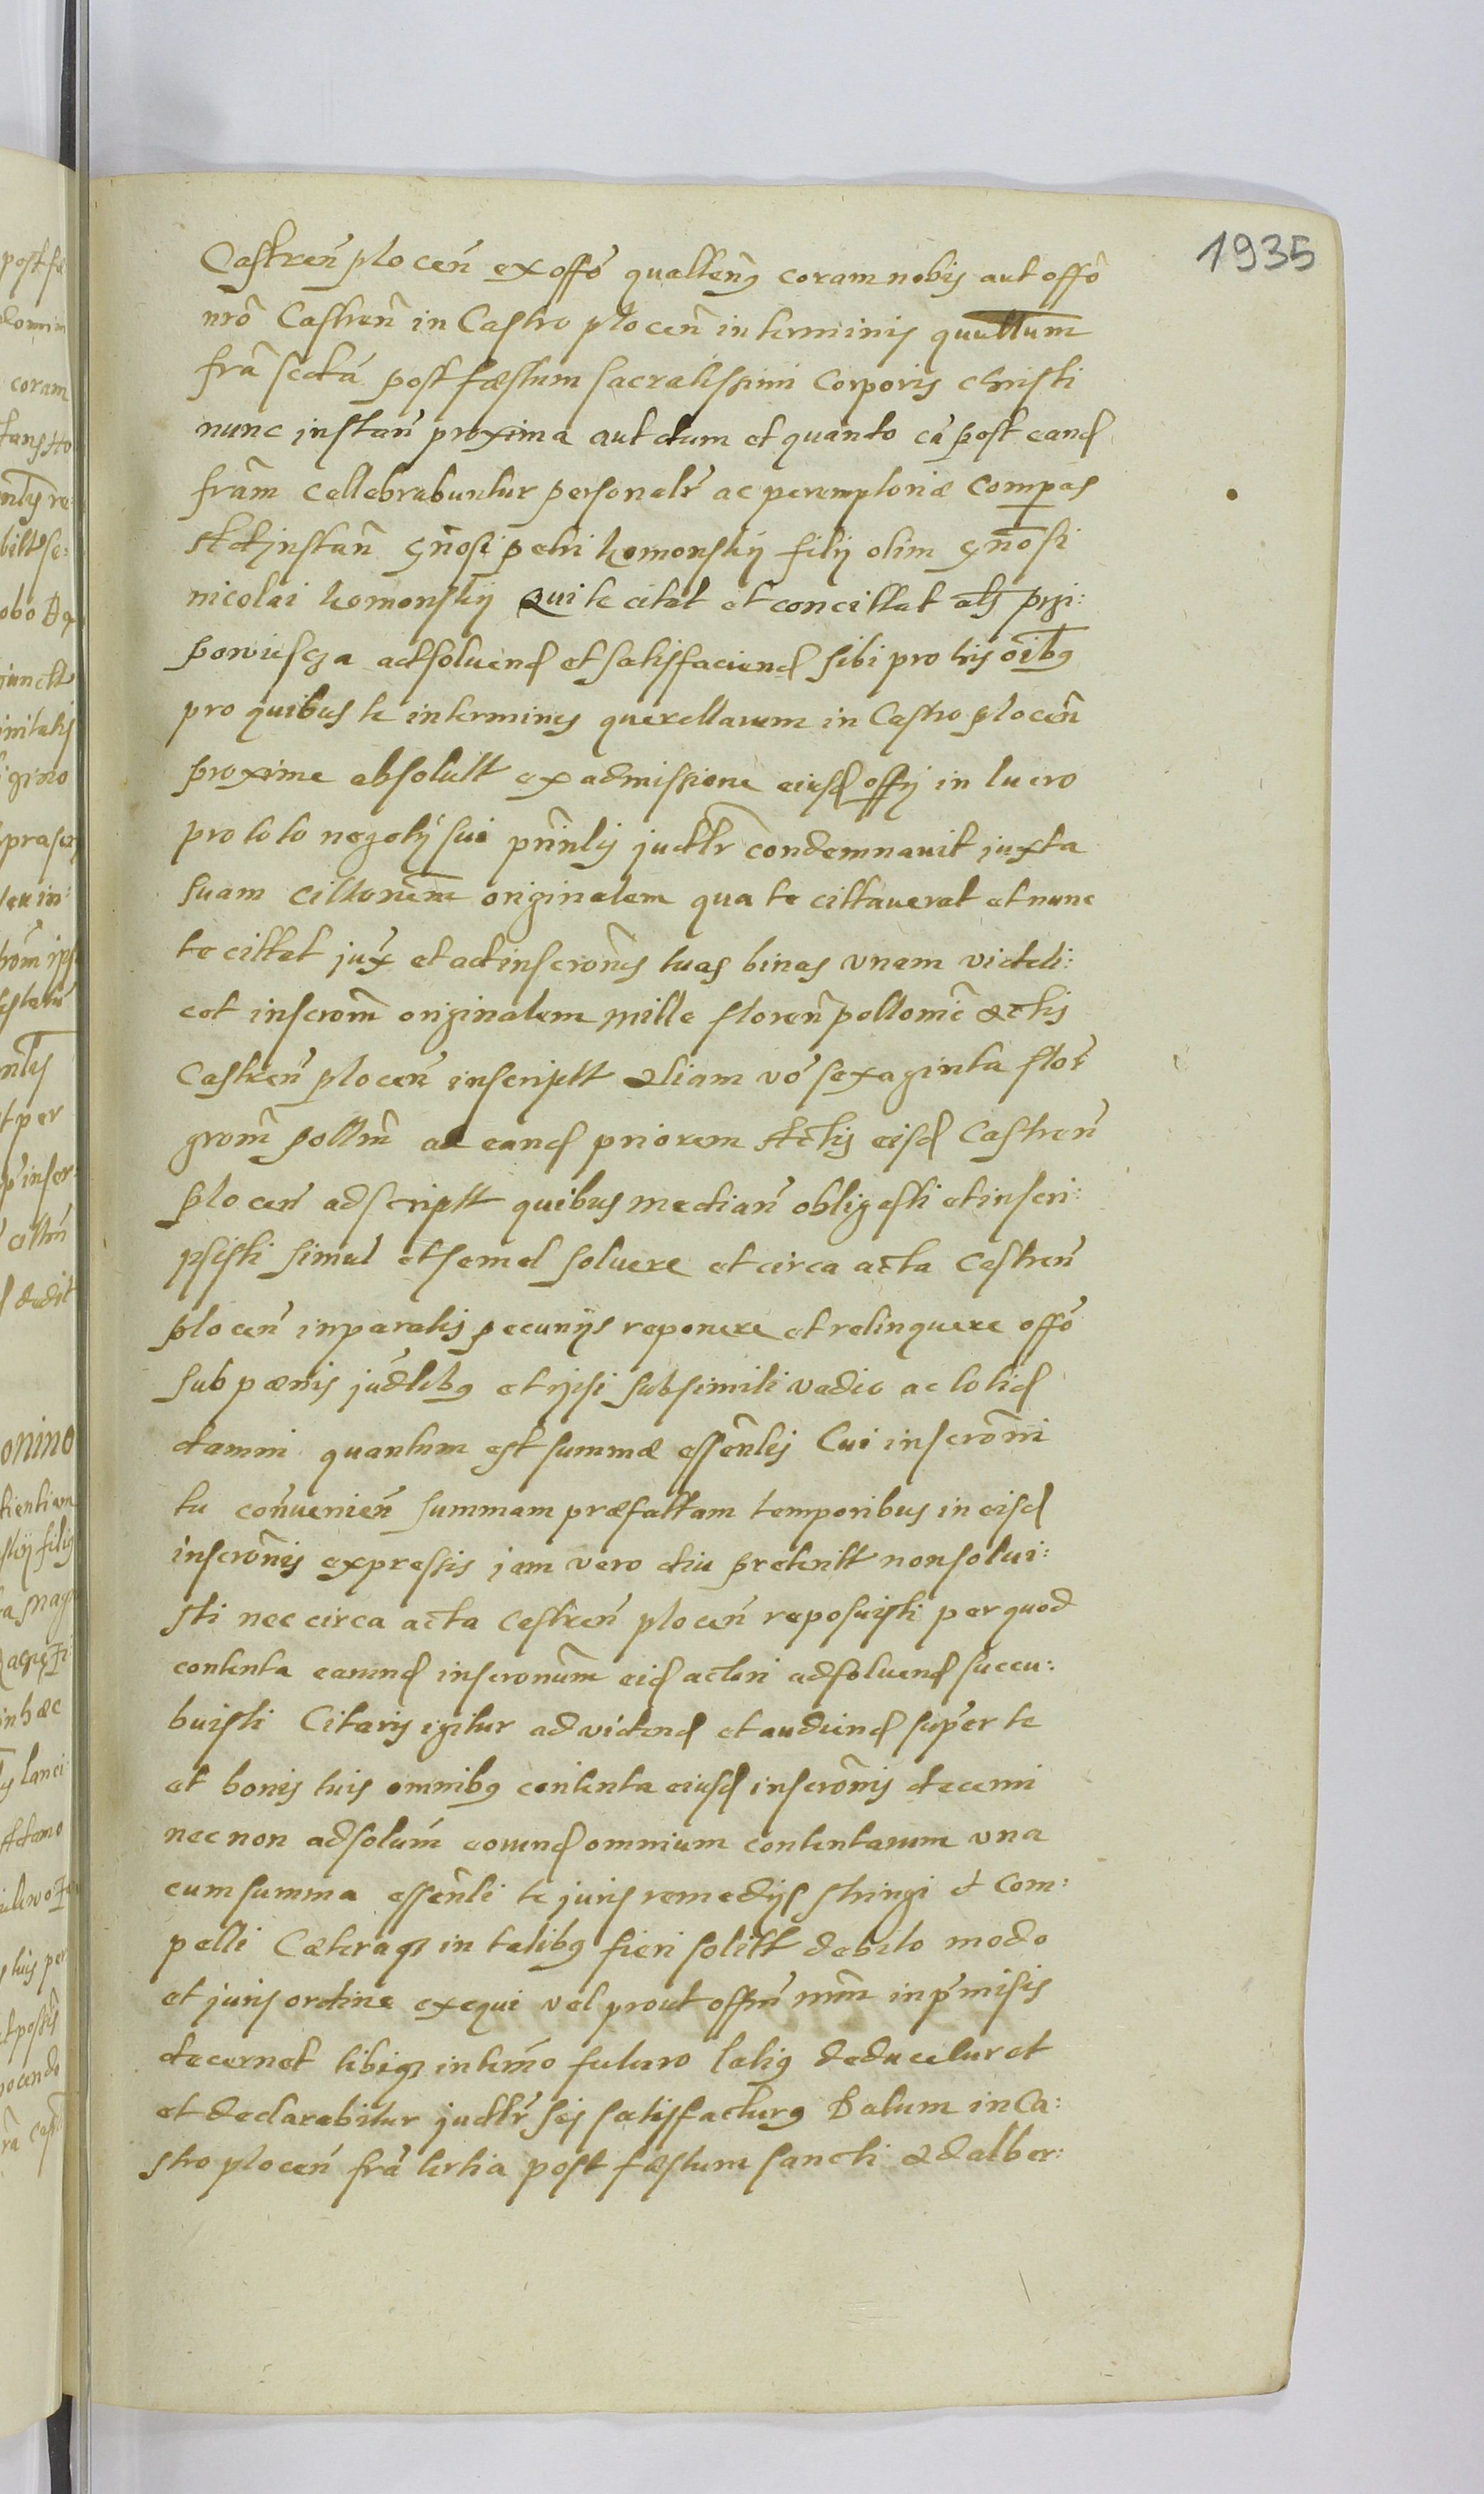 1935
Castren̄ plocen̄ ex offō quatten9 coram nobis aut offō
nrō Castren̄ in Castro plocen̄ in terminis querellarum
frā sexta post fæstum sacratissimi Corporis christi
nunc instan̄ proxima aut dum et quando eā post eand
frām cellebrabuntur personalr̄ ac peremptoriæ compas
Ad instan̄ gn̄osi petri komonskij filij olim gn̄osi
nicolai komonskij Qui te citat et concittat als przi:
powiescza ad soluend et satisfaciend sibi pro his oībq
pro quibus te in terminis querellarum in Castro plocen̄
proxime absolutt ex admissione eiusd offij in lucro
pro toto negotij sui prn̄tis judtr̄ condemnauit juxta
suam cittonem originalem qua te cittauerat et nunc
te cittat jux̄ et ad inscron̄es tuas binas vnam videli:
cet inscrom̄ originalem mille floren̄ pollonic̄ Actis
Castren̄ plocen̄ inscriptt Aliam vō sexaginta flor̄
grom̄ pollm̄ ad eand priorem Actis eisd Castren̄
plocen̄ adscriptt quibus median̄ obligasti et inscri:
psisti simul et semel soluere et circa acta Castren̄
plocen̄ in paratis pecunijs reponere et relinquere offō
sub pænis jūdlibq et ipsi sub simili vadio ac totid
damni quantum est summæ essen̄tlis Cui inscron̄i
tu con̄uenien̄ summam præfattam temporibus in eisd
inscron̄is expressis jam vero diu preteritt non solui:
sti nec circa acta Castren̄ plocen̄ reposuisti per quod
contenta earund inscronum̄ eid actori ad soluend succu:
buisti Citaris igitur ad videnđ et audiend super te
et bonis tuis omnibq contenta eiusd inscron̄is decerni
nec non ad solum̄ eorund omnium contentarum vna
cum summa essen̄tli te juris remedijs stringi et com:
pelli Cæteraqꝫ in talibq fieri solitt debito modo
et juris ordine exequi vel prout offm̄ nrm̄ in p̄misis
decernet tibiqꝫ in term̄o futuro latiq deducetur et
et declarabitur judtr̄ sis satisfacturq Datum in Ca:
stro plocen̄ frā tertia post fæstum sancti Adalber: